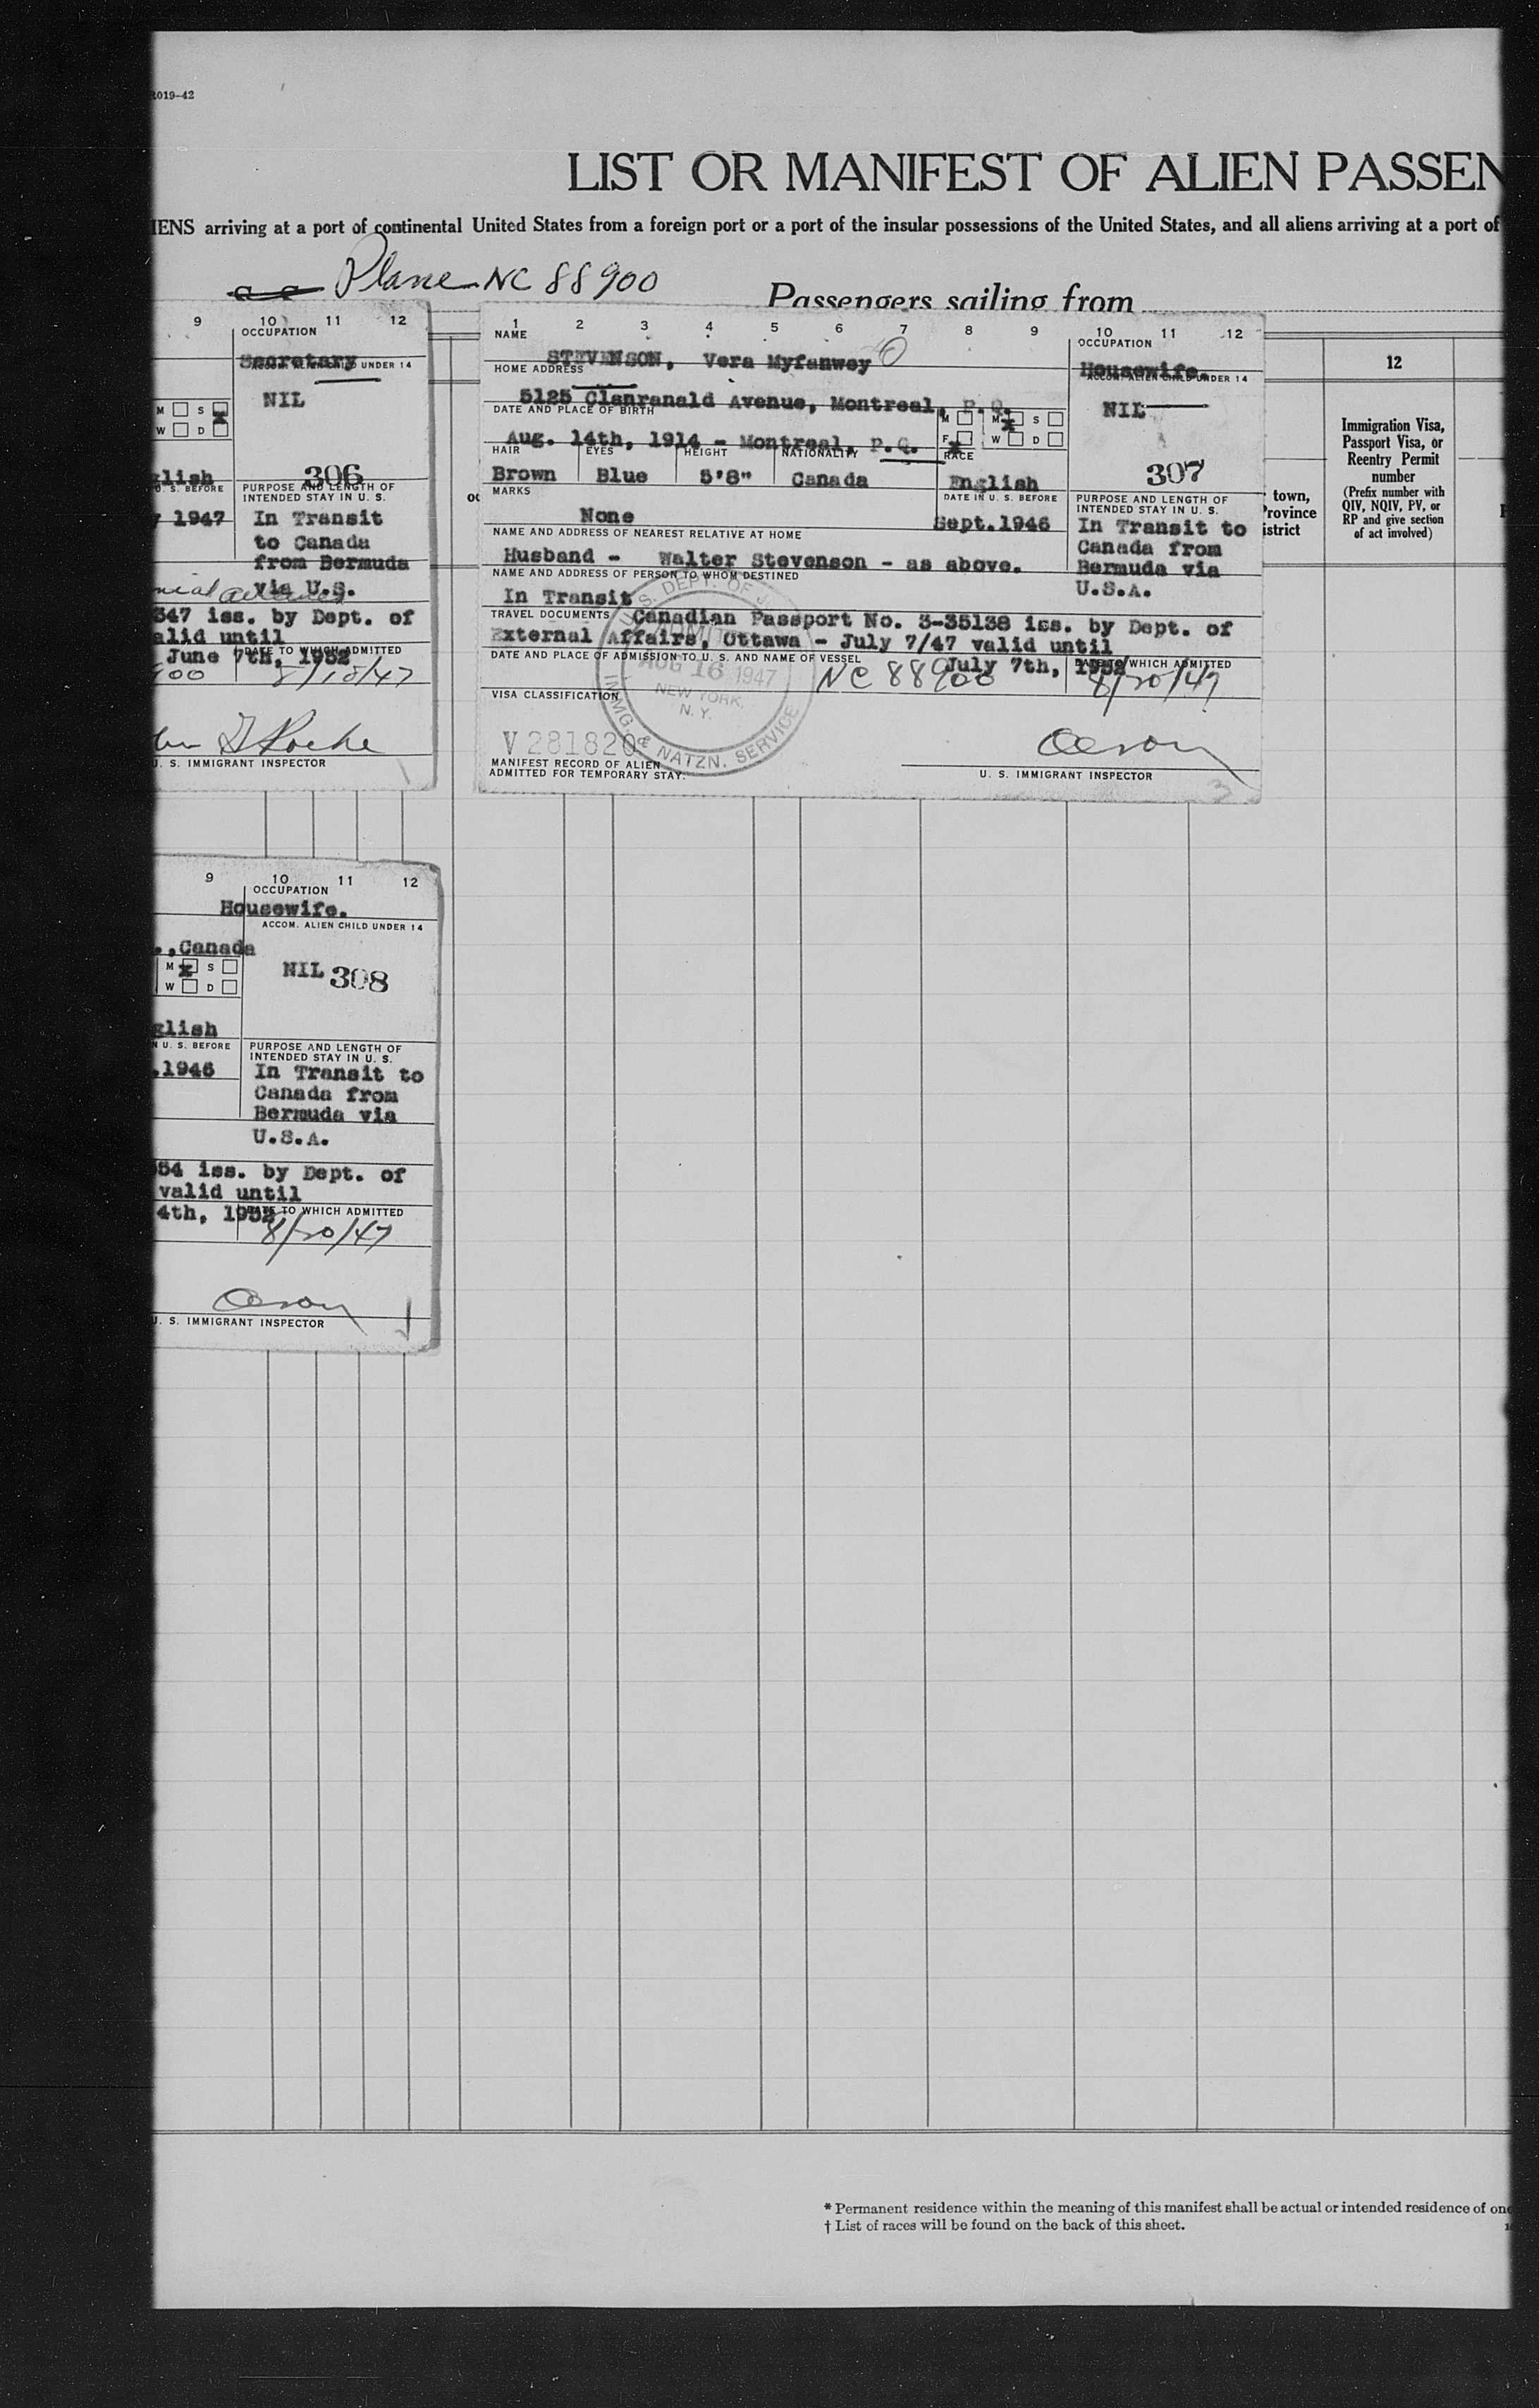 2019-42
LIST OR MANIFEST OF ALIEN PASSEN
IENS arriving at a port of continental United States from a foreign port or a port of the insular possessions of the United States, and all aliens arriving at a port of
Plane NC 88900
Passengers sailing from
9 10 11 12
OCCUPATION
Secretary
ACCOM. ALIEN CHILD UNDER 14
NIL
M S X
W D
306
glish
U. S. BEFORE
PURPOSE AND LENGTH OF
INTENDED STAY IN U. S.
1947
In Transit
to Canada
from Bermuda
via U.S.
347 iss. by Dept. of
alid until
June 7th, 1952
DATE TO WHICH ADMITTED
900 8/18/47
U. S. IMMIGRANT INSPECTOR
1 2 3 4 5 6 7 8 9 10 11 12
NAME
STEVENSON, Vera Myfanwey
OCCUPATION
Housewife.
HOME ADDRESS
ACCOM. ALIEN CHILD UNDER 14
5125 Clanranald Avenue, Montreal, P.Q.
NIL
DATE AND PLACE OF BIRTH
M M X S
Aug. 14th, 1914 - Montreal, P.Q.
F X W D
HAIR EYES HEIGHT NATIONALITY RACE
307
Brown Blue 5'8" Canada English
MARKS
DATE IN U. S. BEFORE
PURPOSE AND LENGTH OF
INTENDED STAY IN U. S.
None
Sept.1946
In Transit to
Canada from
Bermuda via
U.S.A.
NAME AND ADDRESS OF NEAREST RELATIVE AT HOME
Husband - Walter Stevenson - as above.
NAME AND ADDRESS OF PERSON TO WHOM DESTINED
In Transit
TRAVEL DOCUMENTS
Canadian Passport No. 3-35138 iss. by Dept. of
External Affairs, Ottawa - July 7/47 valid until
July 7th, 1952
DATE AND PLACE OF ADMISSION TO U. S. AND NAME OF VESSEL
DATE TO WHICH ADMITTED
NC 88900 8/20/47
U. S. DEPT. OF J
ADMITTED
AUG 16 1947
NEW YORK,
N. Y.
IMMG. & NATZN. SERVICE
VISA CLASSIFICATION
V 281820
MANIFEST RECORD OF ALIEN
ADMITTED FOR TEMPORARY STAY.
U. S. IMMIGRANT INSPECTOR
3
town,
Province
istrict
12
Immigration Visa,
Passport Visa, or
Reentry Permit
number
(Prefix number with
QIV, NQIV, PV, or
RP and give section
of act involved)
9 10 11 12
OCCUPATION
Housewife.
ACCOM. ALIEN CHILD UNDER 14
.,Canada
M X S
W D
NIL 308
glish
N U. S. BEFORE
PURPOSE AND LENGTH OF
INTENDED STAY IN U. S.
.1946
In Transit to
Canada from
Bermuda via
U.S.A.
54 iss. by Dept. of
valid until
4th, 1952
DATE TO WHICH ADMITTED
8/20/47
U. S. IMMIGRANT INSPECTOR
* Permanent residence within the meaning of this manifest shall be actual or intended residence of one
† List of races will be found on the back of this sheet.